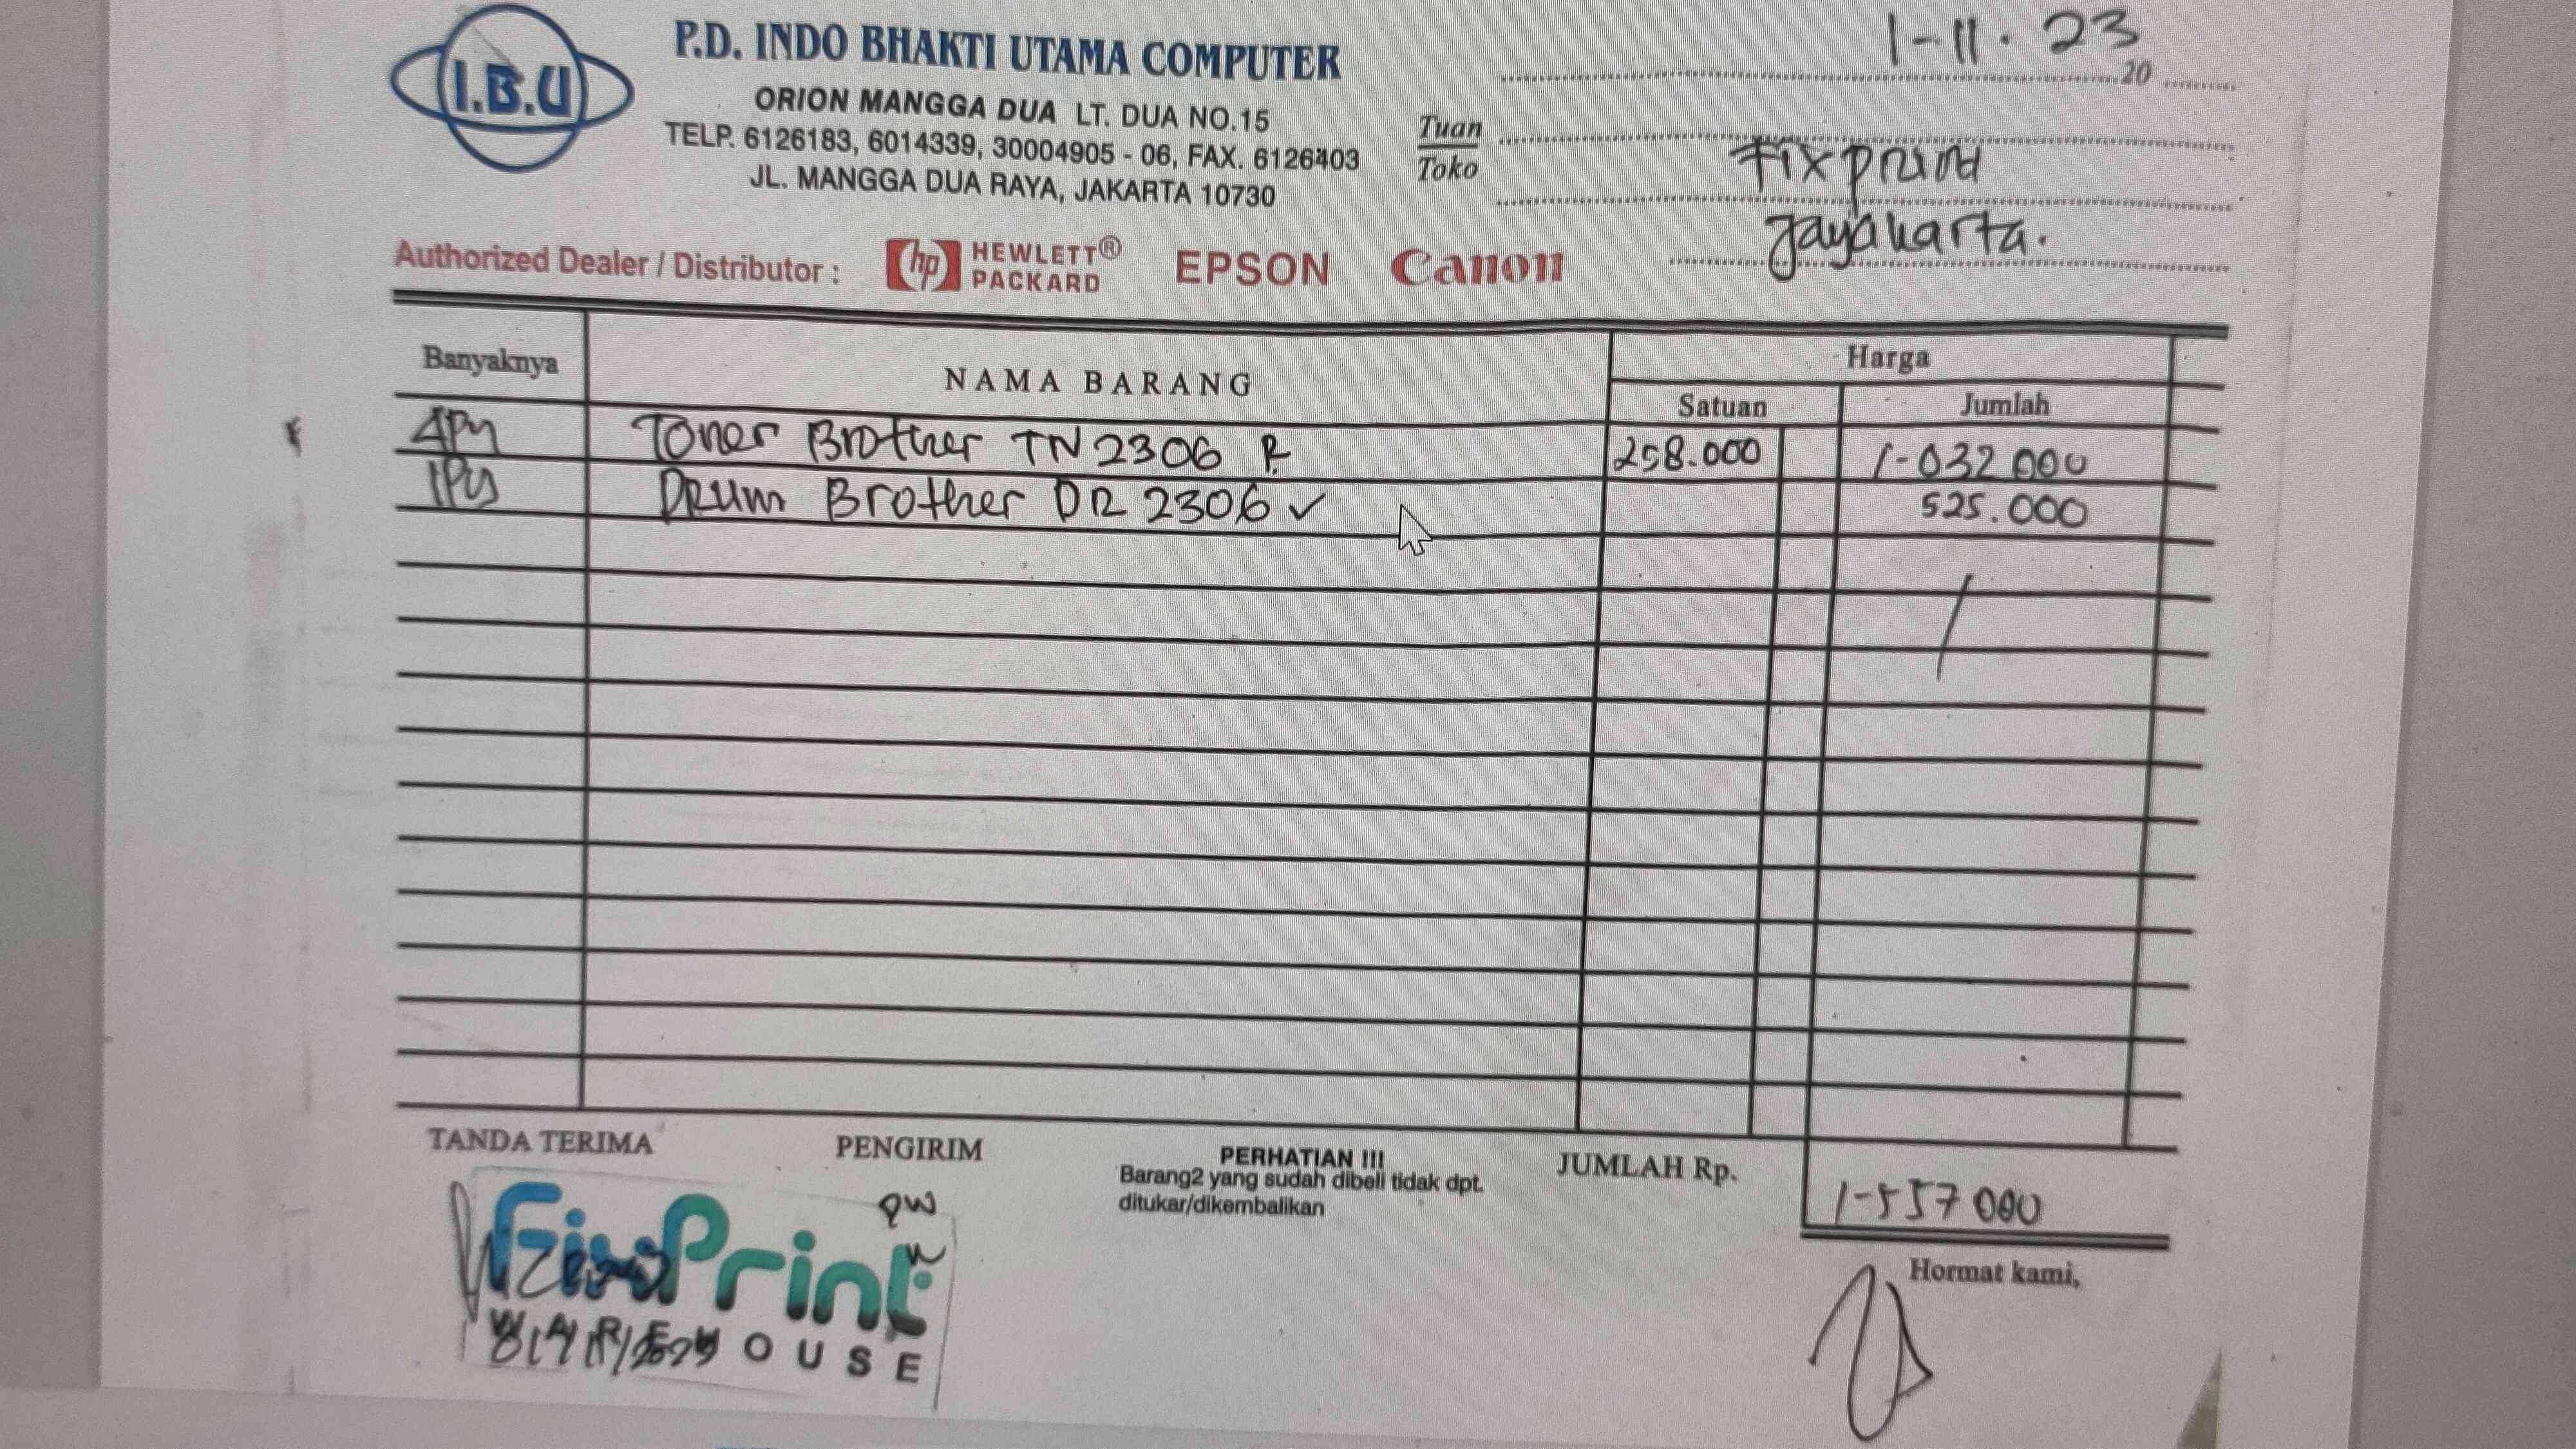 I.B.U
P.D. INDO BHAKTI UTAMA COMPUTER
ORION MANGGA DUA LT. DUA NO.15
TELP. 6126183, 6014339, 30004905 - 06, FAX. 6126403
JL. MANGGA DUA RAYA, JAKARTA 10730
1-11.23
20
Tuan
Toko
Fixprint
Jayakarta.
Authorized Dealer / Distributor : hp HEWLETT® PACKARD EPSON Canon
Banyaknya NAMA BARANG Harga
Satuan Jumlah
4 Toner Brother TN 2306 258.000 1-032 000
1 Drum Brother DR 2306 ✓ 525.000
TANDA TERIMA PENGIRIM PERHATIAN !!! JUMLAH Rp.
Barang2 yang sudah dibeli tidak dpt.
ditukar/dikembalikan
1-557 000
FixPrint
WAREHOUSE
Hormat kami,